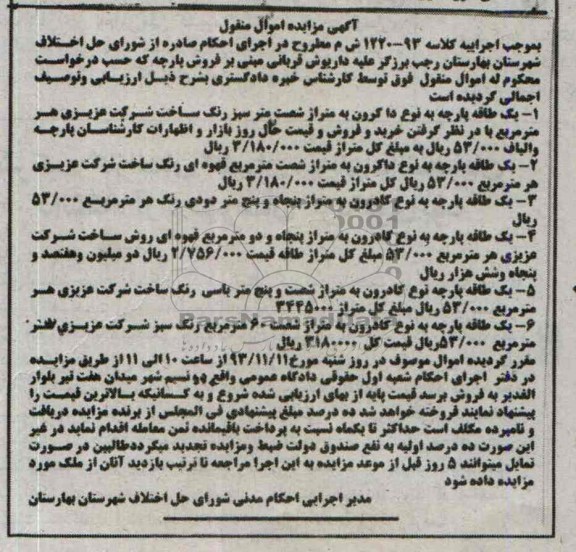 آگهی مزایده اموال منقول
بموجب اجراییه کلاسه ۹۳-۱۲۲۰ ش م مطروح در اجرای احکام صادره از شورای حل اختلاف
شهرستان بهارستان رجب برزگر علیه داریوش قربانی مبنی بر فروش پارچه که حسب درخواست
محکوم له اموال منقول فوق توسط کارشناس خبره دادگستری بشرح ذیل ارزیابی وتوصیف
اجمالی گردیده است
۱- یک طاقه پارچه به نوع دا کرون به متراژ شصت متر سبز رنگ ساخت شرکت عزیزی هر
مترمربع با در نظر گرفتن خرید و فروش و قیمت حال روز بازار و اظهارات کارشناسان پارچه
والیاف ۵۳/۰۰۰ ریال به مبلغ کل متراژ قیمت ۳/۱۸۰/۰۰۰ ریال
۲- یک طاقه پارچه به نوع داکرون به متراژ شصت مترمربع قهوه ای رنگ ساخت شرکت عزیزی
هر مترمربع ۵۳/۰۰۰ ریال کل متراژ قیمت ۳/۱۸۰/۰۰۰ ریال
۳- یک طاقه پارچه به نوع کادرون به متراژ پنجاه و پنج متر دودی رنگ هر مترمربع ۵۳/۰۰۰
ریال
۴- یک طاقه پارچه به نوع کادرون به متراژ پنجاه و دو مترمربع قهوه ای روش ساخت شرکت
عزیزی هر مترمربع ۵۳/۰۰۰ مبلغ کل متراژ طاقه قیمت ۲/۷۵۶/۰۰۰ ریال دو میلیون وهفتصد و
پنجاه وشش هزار ریال
۵- یک طاقه پارچه به نوع کادرون به متراژ شصت و پنج متر یاسی رنگ ساخت شرکت عزیزی هر
مترمربع ۵۳/۰۰۰ ریال مبلغ کل متراژ ۳۴۴۵۰۰۰
۶- یک طاقه پارچه به نوع کادرون به متراژ شصت ۶۰ مترمربع رنگ سبز شرکت عزیزی هر
مترمربع ۵۳/۰۰۰ ریال قیمت کل ۳۱۸۰۰۰۰ ریال
مقرر گردیده اموال موصوف در روز شنبه مورخ ۹۳/۱۱/۱۱ از ساعت ۱۰ الی ۱۱ از طریق مزایده
در دفتر اجرای احکام شعبه اول حقوقی دادگاه عمومی واقع در نسیم شهر میدان هفت تیر بلوار
الغدیر به فروش برسد قیمت پایه از بهای ارزیابی شده شروع و به کسانیکه بالاترین قیمت را
پیشنهاد نمایند فروخته خواهد شد ده درصد مبلغ پیشنهادی فی المجلس از برنده مزایده دریافت
و نامبرده مکلف است حداکثر تا یکماه نسبت به پرداخت باقیمانده ثمن معامله اقدام نماید در غیر
این صورت ده درصد اولیه به نفع صندوق دولت ضبط ومزایده تجدید میگرددطالبین در صورت
تمایل میتوانند ۵ روز قبل از موعد مزایده به این اجرا مراجعه تا ترتیب بازدید آنان از ملک مورد
مزایده داده شود
مدیر اجرایی احکام مدنی شورای حل اختلاف شهرستان بهارستان